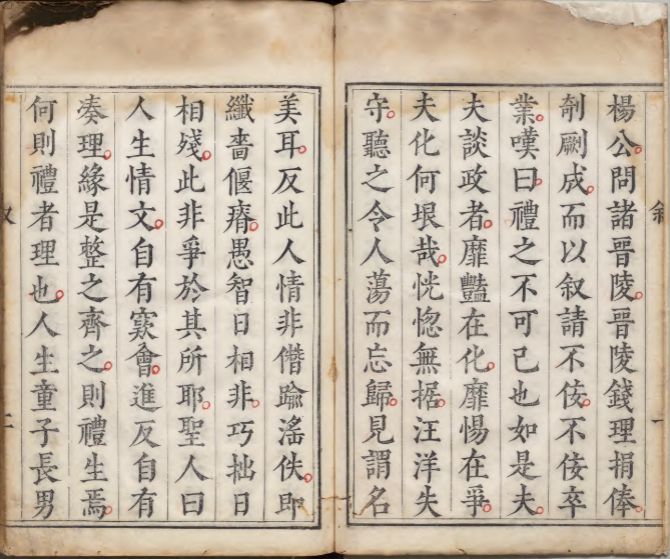 楊公問諸晉陵晉陵錢理捐俸
剞劂成而以叙請不佞不佞卒
業嘆曰禮之不可己也如是夫
夫談政者靡豔在化靡惕在爭
夫化何垠哉恍惚無据汪洋失
守聽之令人蕩而忘歸見謂名
美耳反此人情非僭踰滛佚即
纖嗇偃瘠愚智日相非巧拙日
相殘此非爭於其所耶聖人曰
人生情文自有窾會進反自有
凑理緣是整之齊之則禮生焉
何則禮者理也人生童子長男